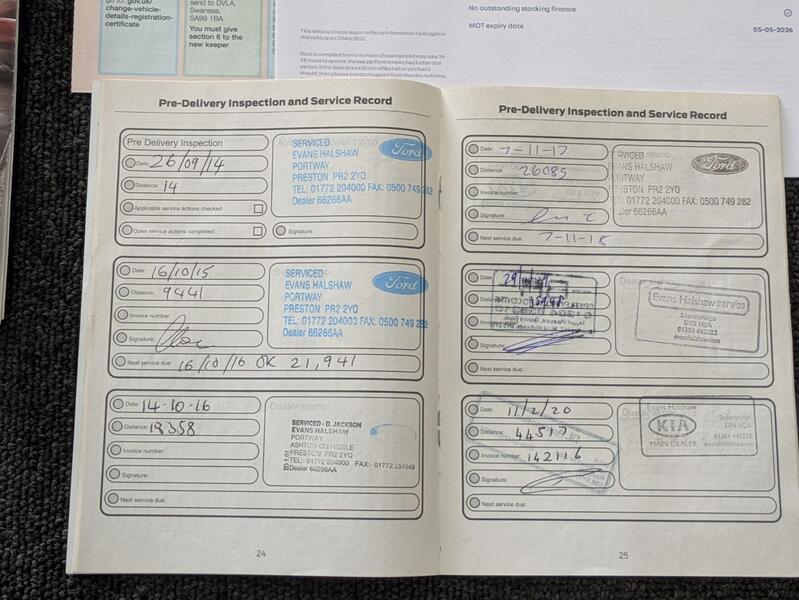 go to: gov.uk/
change-vehicle-
details-registration-
certificate
send to DVLA,
Swansea,
SA99 1BA.
You must give
section 6 to the
new keeper.
This Vehicle Check report reflects information held against
this vehicle on 15 May 2025.
Data is compiled from a number of sources and may take 24-
48 hours to update. Please perform a new check after this
No outstanding stocking finance
MOT expiry date
05-05-2026
Pre-Delivery Inspection and Service Record
Pre Delivery Inspection
Date: 26/09/14
Distance: 14
Applicable service actions checked:
Open service actions completed:
Signature:
SERVICED
EVANS HALSHAW
PORTWAY
PRESTON PR2 2YQ
TEL: 01772 204000 FAX: 0500 749 282
Dealer 66266AA
Ford
Date: 16/10/15
Distance: 9441
Invoice number:
Signature:
Next service due: 16/10/16 OR 21,941
SERVICED
EVANS HALSHAW
PORTWAY
PRESTON PR2 2YQ
TEL: 01772 204000 FAX: 0500 749 282
Dealer 66266AA
Ford
Date: 14-10-16
Distance: 18358
Invoice number:
Signature:
Next service due:
Dealer stamp
SERVICED - D. JACKSON
EVANS HALSHAW
PORTWAY
ASHTON ON RIBBLE
PRESTON PR2 2YQ
TEL:- 01772 204000 FAX:- 01772 251049
Dealer 66266AA
24
Pre-Delivery Inspection and Service Record
Date: 7-11-17
Distance: 26089
Invoice number:
Signature:
Next service due: 7-11-18
stamp
HALSHAW
PORTWAY
PRESTON PR2 2YQ
TEL: 01772 204000 FAX: 0500 749 282
Dealer 66266AA
Ford
Date:
Distance:
Invoice number:
Signature:
Next service due:
Dealer stamp
Evans Halshaw service
Stourbridge
DY8 1QA
01384 442233
evanshalshaw.com
Date: 11/2/20
Distance: 44517
Invoice number: 142116
Signature:
Next service due:
Evans Halshaw
KIA
MAIN DEALER
Stourbridge
DY8 1QA
01384 442233
evanshalshaw.com
25